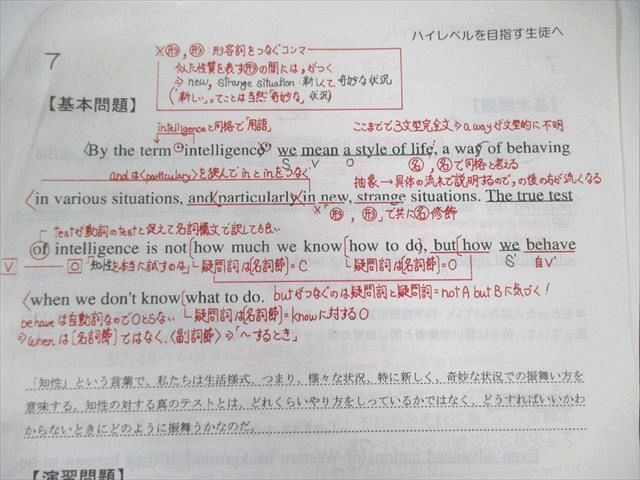 ハイレベルを目指す生徒へ
7
※形, 形 形容詞をつなぐコンマ
似た性質を表す形の間には,がつく
⇒ new, strange situation 新しくて、奇妙な状況
(「新しい」ってことは当然「奇妙な」状況)
【基本問題】
intelligenceと同格で「用語」
ここまでで3文型完全文⇒a wayが文型的に不明
〈By the term intelligence〉 we mean a style of life, a way of behaving
S V O
名, 名で同格と考える
andは〈particulary〉を挟んでinとinをつなぐ
抽象→具体の流れで説明するので,の後の方が流くなる
〈in various situations, and〈particularly〉in new, strange situations. The true test
※形, 形で共に名修飾
testが動詞のtestと捉えて名詞構文で訳しても良い
of intelligence is not [how much we know [how to do], but [how we behave
V O 「知性を本当に試すのは」 疑問詞は[名詞節]=C 疑問詞は[名詞節]=O S' 自V'
〈when we don't know [what to do. butがつなぐのは疑問詞と疑問詞=not A but Bに気づく!
behaveは自動詞なのでOとらない 疑問詞は[名詞節]=knowに対するO
⇒whenは[名詞節]ではなく、〈副詞節〉⇒「~するとき」
「知性」という言葉で、私たちは生活様式、つまり、様々な状況、特に新しく、奇妙な状況での振舞い方を
意味する。知性の対する真のテストとは、どれくらいやり方をしっているかではなく、どうすればいいかわ
からないときにどのように振舞うかなのだ。
【演習問題】